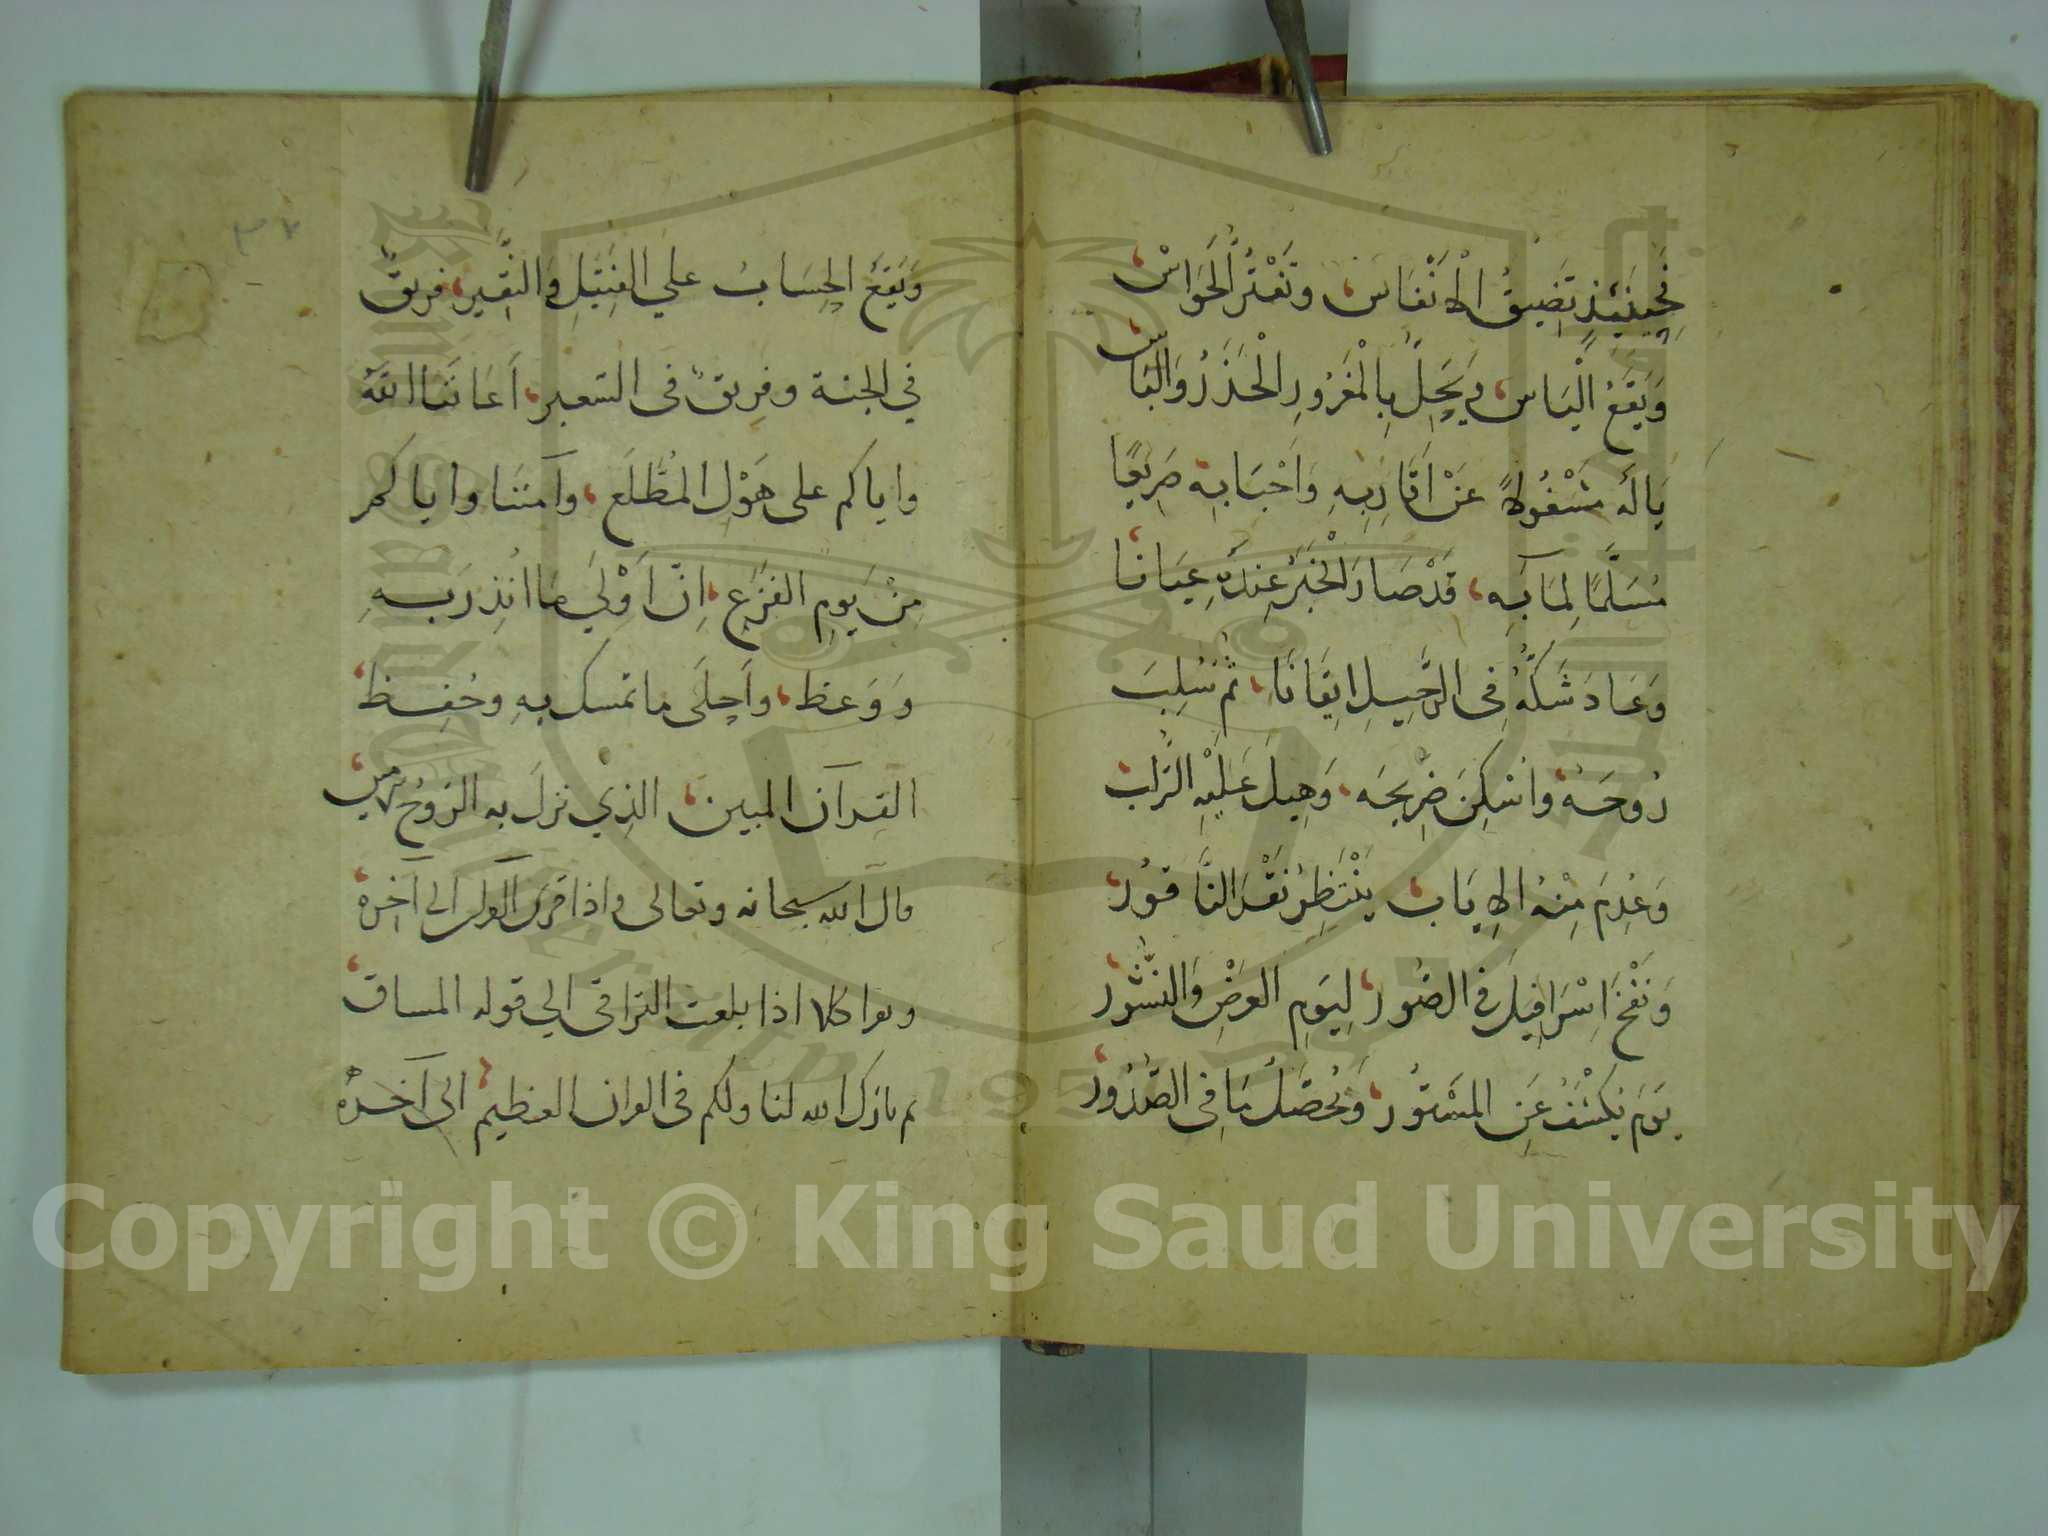 فَحِينَئِذٍ تَضِيقُ الْاَنْفَاسُ وَتَفْتُرُ الْحَوَاسُّ
وَيَقَعُ الْيَاسُ وَيَحِلُّ بِالْمَغْرُورِ الْحَذَرُ وَالْبَاسُ
يَالَهُ مَشْغُولًا عَنْ اَقَارِبِهِ وَاَحْبَابِهِ صَرِيعًا
مُسَلَّمًا لِمَآبِهِ قَدْ صَارَ الْخَبَرُ عِنْدَهُ عِيَانًا
وَعَادَ شَكُّهُ فِى الرَّحِيلِ اِيقَانًا ثُمَّ سُلِبَ
رُوحَهُ وَاُسْكِنَ ضَرِيحَه وَهِيلَ عَلَيْهِ التُّرَابُ
وَعُدِمَ مِنْهُ الْاِيَابُ يَنْتَظِرُ نَقْرَ النَّاقُورِ
وَنَفْخَ اِسْرَافِيلَ فِي الصُّورِ لِيَوْمِ الْعَرْضِ وَالنُّشُورِ
يَوْمَ يُكْشَفُ عَنِ الْمَسْتُورِ وَيُحَصَّلُ مَا فِي الصُّدُورِ
وَيَقَعُ الْحِسَابُ علي الفَتِيلِ وَالنَّقِيرِ فريقٌ
في الجنة وفريقٌ فى السعير اَعَانَنَا اللّٰهُ
واياكم على هَوْلِ المُطَّلَعِ وآمَنَنَا واياكم
مِنْ يَوْمِ الفَزَعِ اِنَّ اَوْلَي مَا اُنْذِرَ بِهِ
وَوَعظ وأجلَى ما تمسك بِهِ وحُفِظ
القرآن المبين الذي نزلَ به الروحُ الامين
قال الله سبحانه وتعالى واذا قرى القران الى آخره
وتقرا كلا اذا بلغت التراقى الي قوله المساق
ثم بارك الله لنا ولكم فى القران العظيم الى آخره
٣٧
Copyright © King Saud University
1957